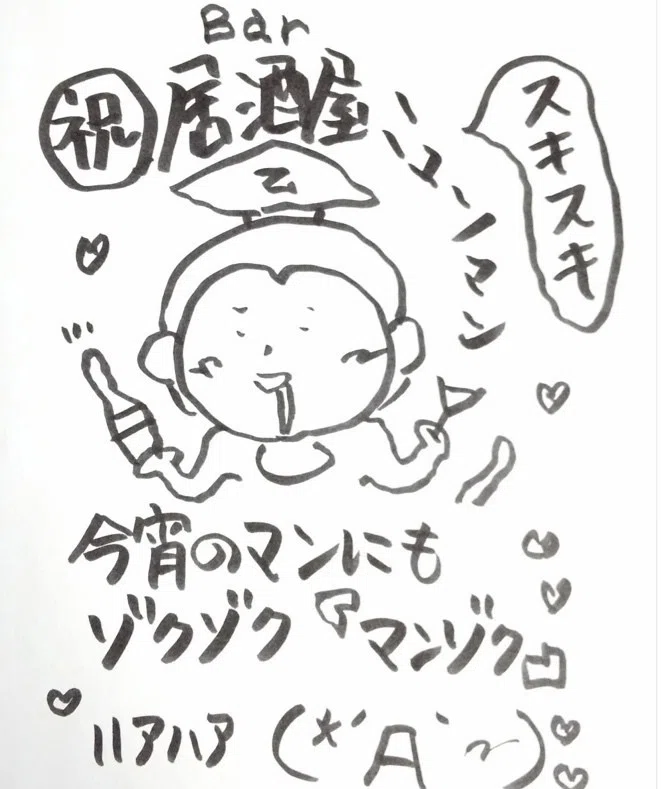 Bar
祝 居酒屋
スキスキ
乙
今宵のマンにも
ゾクゾク『マンゾク』
ハアハア (*´A`~)